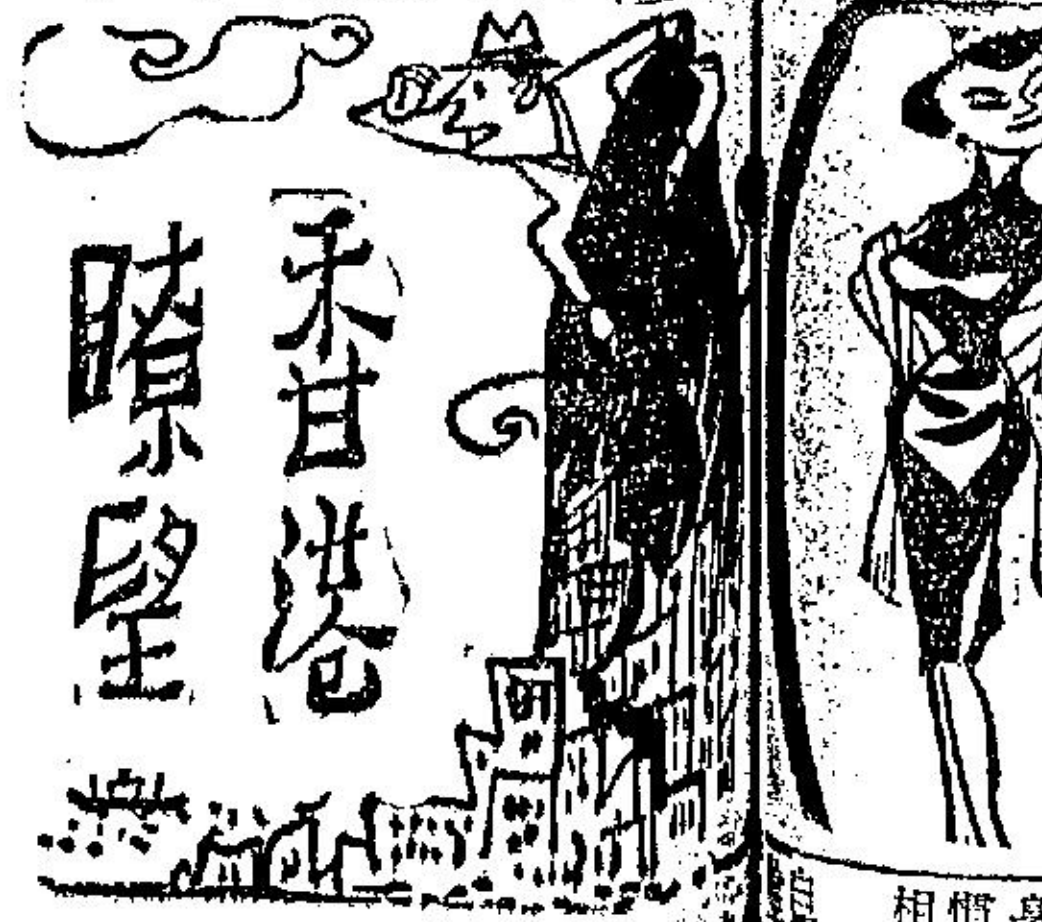 香港
瞭望
相